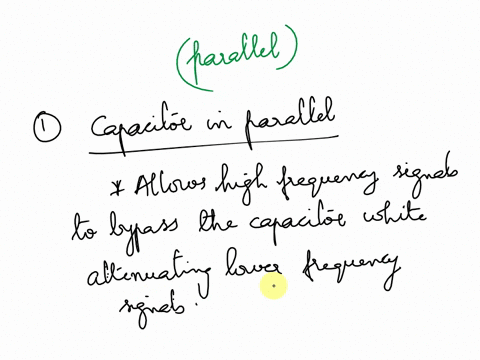 (parallel)
① Capacitor in parallel
* Allows high frequency signals
to bypass the capacitor white
attenuating lower frequency
signals.